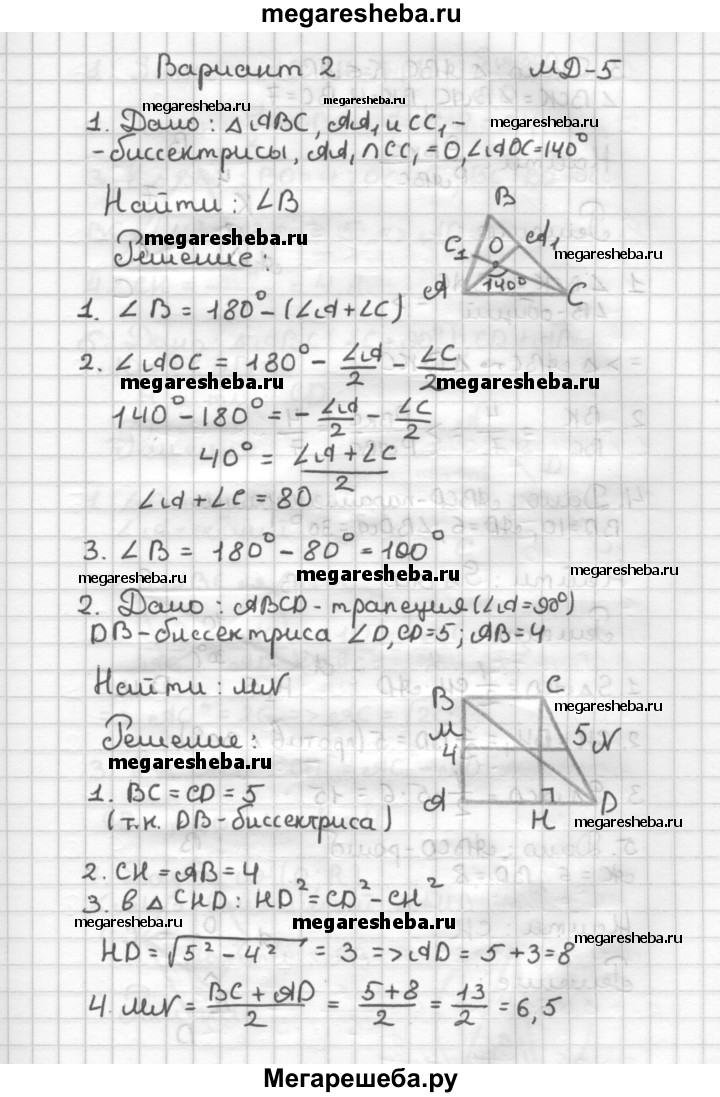 megaresheba.ru
Вариант 2 МД-5
megaresheba.ru megaresheba.ru
1. Дано: △ABC, AA₁ и CC₁ - megaresheba.ru
-биссектрисы, AA₁ ∩ CC₁ = O, ∠AOC = 140°
Найти: ∠B
B
megaresheba.ru
C₁ O A₁
megaresheba.ru
Решение:
A 140° C
1. ∠B = 180° - (∠A + ∠C)
2. ∠AOC = 180° - ∠A/2 - ∠C/2
megaresheba.ru megaresheba.ru
140° - 180° = - ∠A/2 - ∠C/2
40° = (∠A + ∠C)/2
∠A + ∠C = 80
3. ∠B = 180° - 80° = 100°
megaresheba.ru megaresheba.ru megaresheba.ru
2. Дано: ABCD - трапеция (∠A = 90°)
DB - биссектриса ∠D, CD = 5; AB = 4
Найти: MN
B C
megaresheba.ru
Решение:
M 5 N
4
megaresheba.ru
1. BC = CD = 5
A H D
(т.к. DB - биссектриса)
megaresheba.ru
2. CH = AB = 4
3. В △CHD: HD² = CD² - CH²
megaresheba.ru megaresheba.ru megaresheba.ru
HD = √5² - 4² = 3 => AD = 5 + 3 = 8
4. MN = (BC + AD)/2 = (5 + 8)/2 = 13/2 = 6,5
Мегарешеба.ру